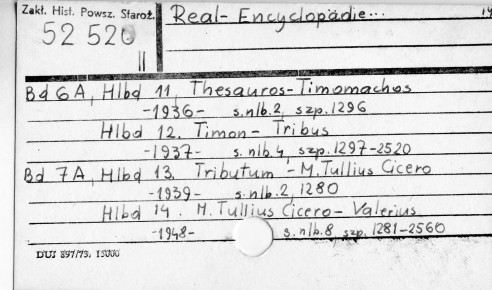 Zakł. Hist. Powsz. Staroż.
52 520
II
Real-Encyclopädie...
Bd 6A, Hlbd 11, Thesauros-Timomachos
-1936- s.nlb.2, szp.1296
Hlbd 12. Timon- Tribus
-1937- s.nlb.4, szp.1297-2520
Bd 7A, Hlbd 13. Tributum - M.Tullius Cicero
-1939- s.nlb.2, 1280
Hlbd 14. M.Tullius Cicero- Valerius
-1948- s.nlb.8, szp.1281-2560
DUJ 897/73. 15000